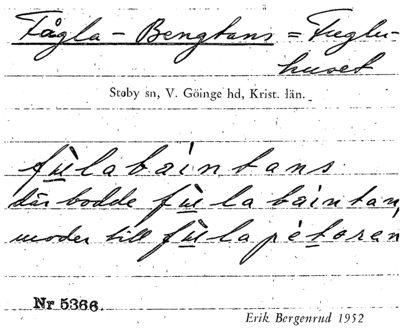 Fågla-Bengtans = Fuglu-
huset
Stoby sn, V. Göinge hd, Krist. län.
fùlabàintans
där bodde fùlabàintan,
moder till fùlapètoran
Nr 5366.
Erik Bergenrud 1952